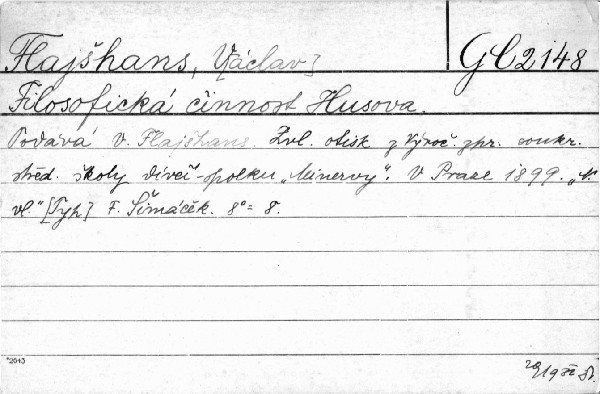 Flajšhans, V[áclav]
GC 2148
Filosofická činnost Husova.
Podává V. Flajšhans. Zvl. otisk z Výroč. zpr. soukr.
střed. školy dívčí - spolku „Minervy“. V Praze 1899. „N.
vl.“ [Typ.] F. Šimáček. 8° = 8.
*2043